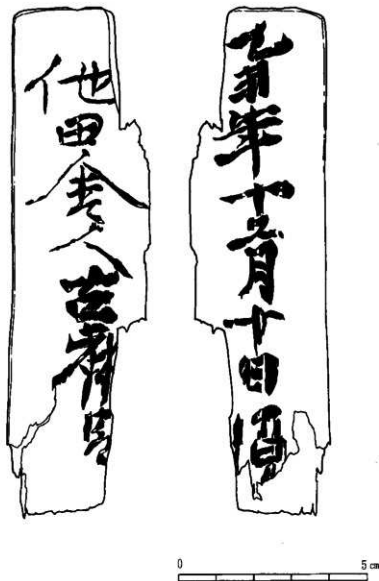 乙丑年十二月十日酒
他田舎人古麻呂
0 5㎝